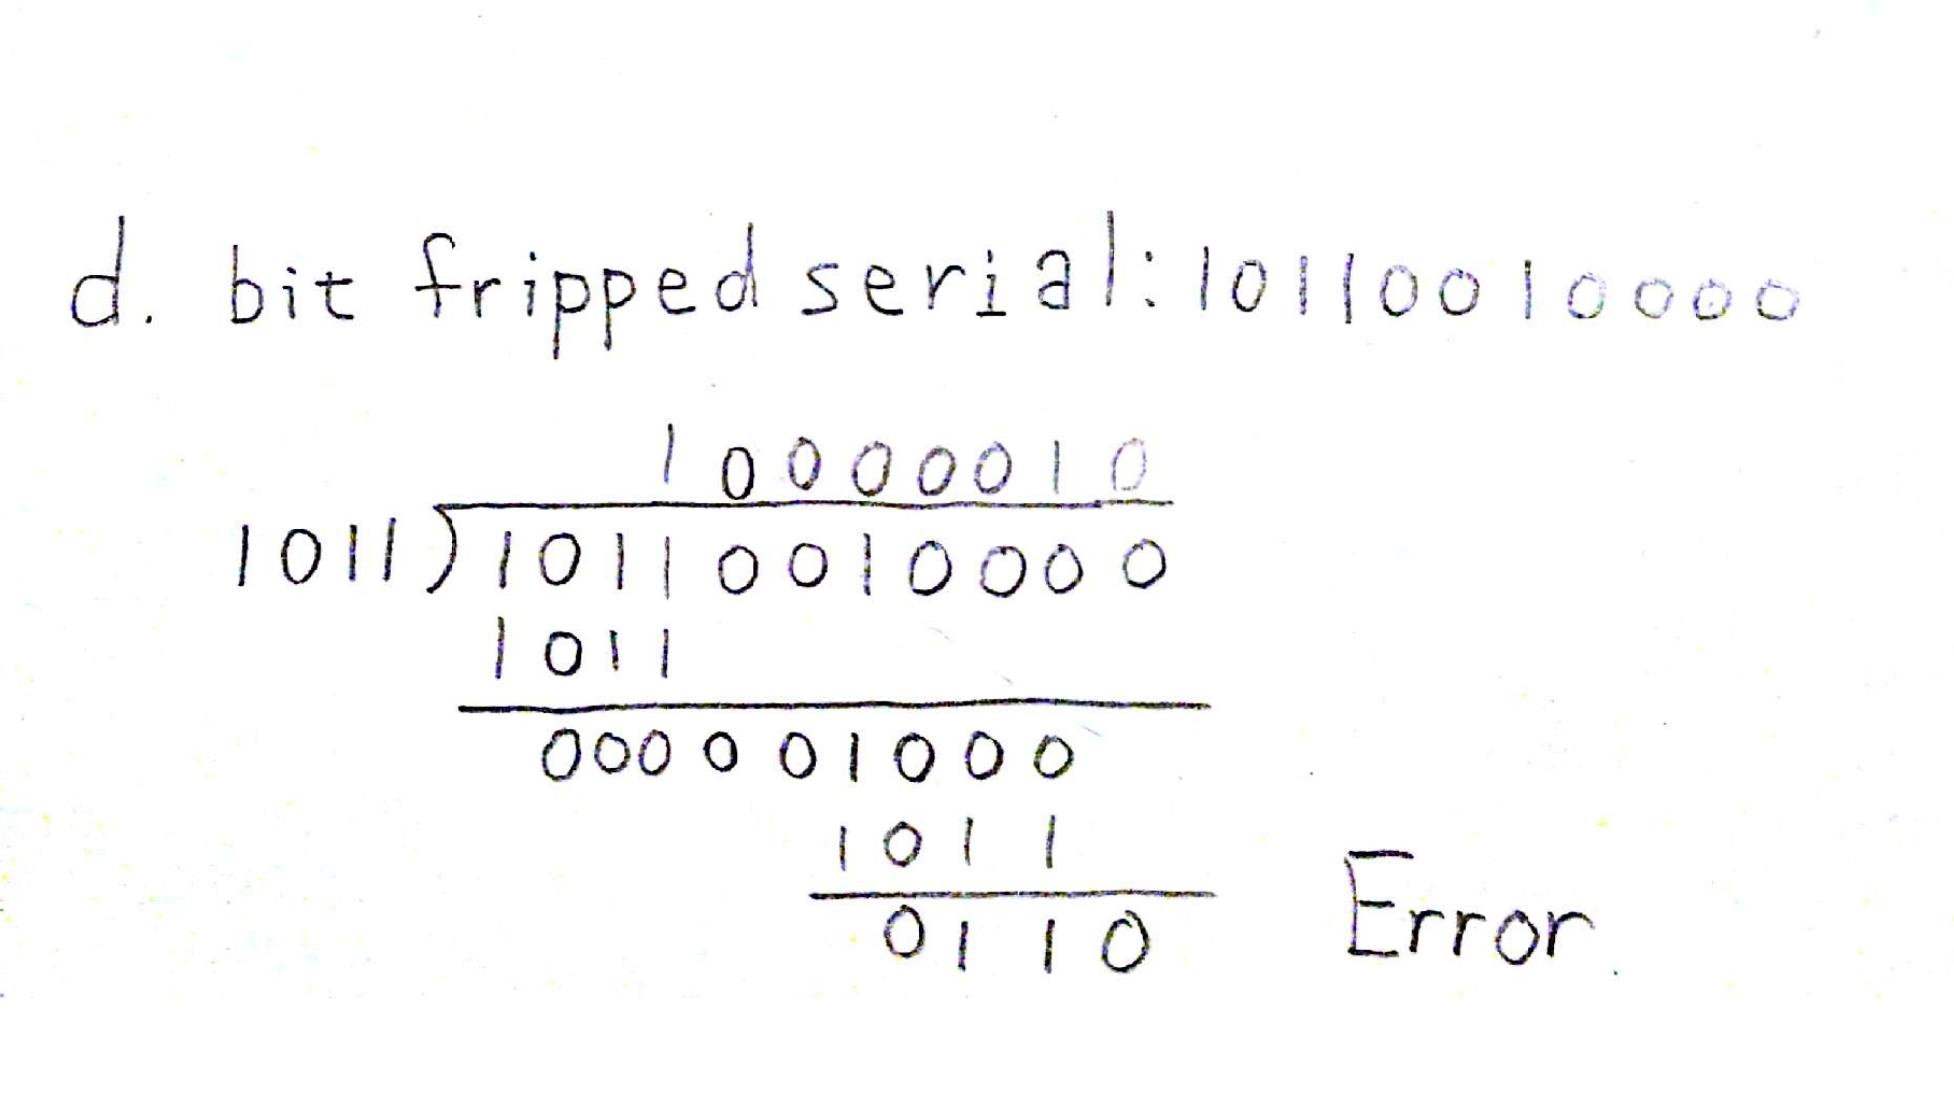 d. bit fripped serial: 10110010000
10000010
1011)10110010000
1011
000001000
1011
0110 Error